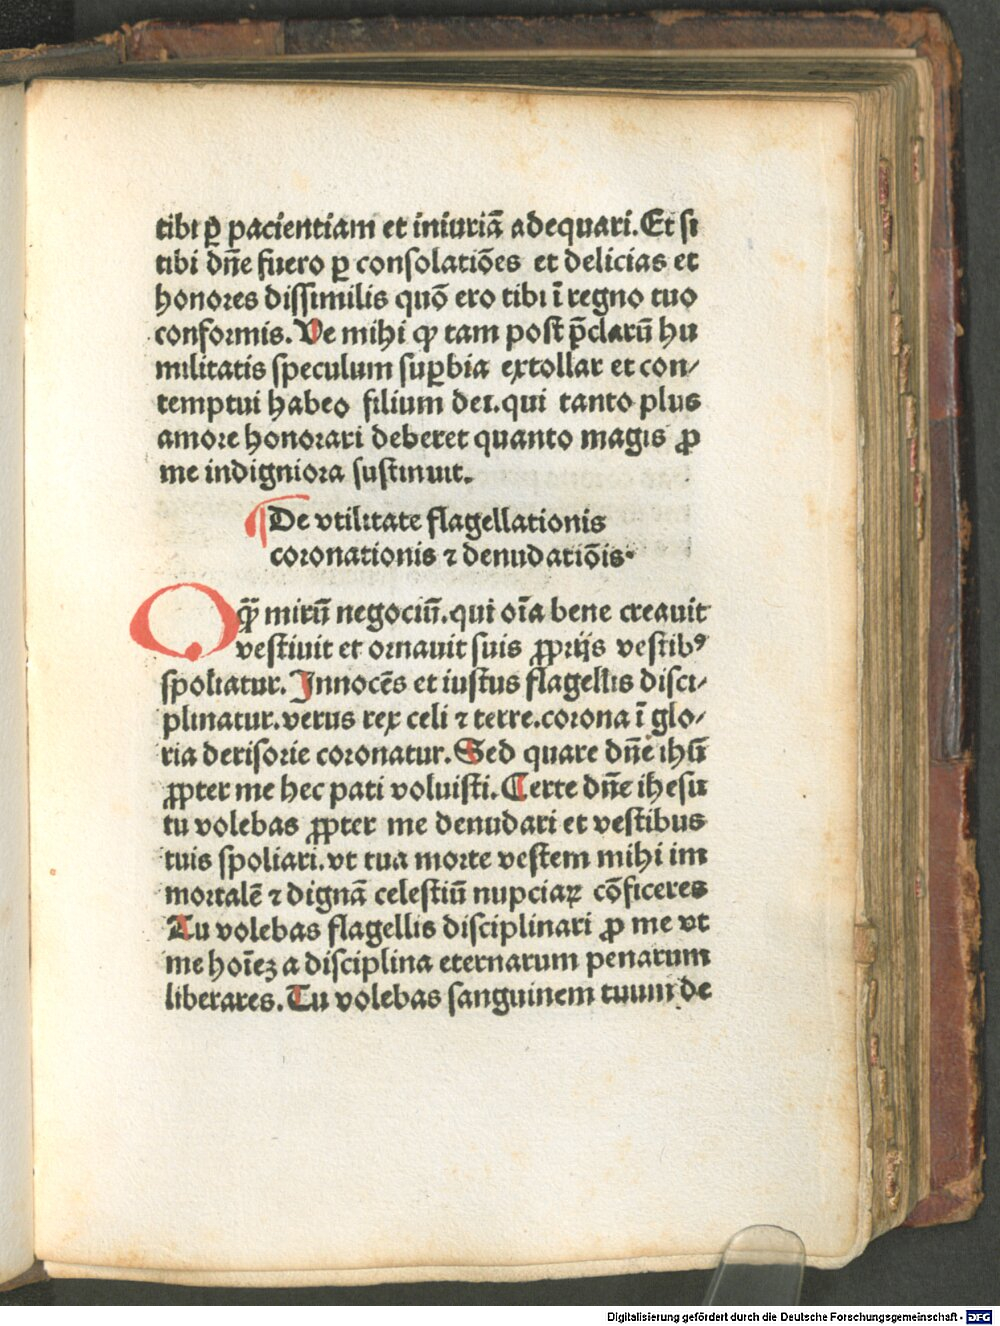 tibi ꝑ pacientiam et iniuriā adequari. Et si
tibi dn̄e fuero ꝑ consolatiōes et delicias et
honores dissimilis quō ero tibi ī regno tuo
conformis. Ve mihi ꝙ tam post p̄clarū hu
militatis speculum suꝑbia extollar et con⸗
temptui habeo filium dei. qui tanto plus
amore honorari deberet quanto magis ꝓ
me indigniora sustinuit.
De vtilitate flagellationis
coronationis ⁊ denudatiōis.
O ꝙ̄ mirū negociū. qui oīa bene creauit
vestiuit et ornauit suis ꝓprijs vestibꝰ
spoliatur. Innocēs et iustus flagellis disci⸗
plinatur. verus rex celi ⁊ terre. corona ī glo⸗
ria derisorie coronatur. Sed quare dn̄e ihū
ꝓpter me hec pati voluisti. Certe dn̄e ihesu
tu volebas ꝓpter me denudari et vestibus
tuis spoliari. vt tua morte vestem mihi im
mortalē ⁊ dignā celestiū nupciaꝝ cōficeres
Tu volebas flagellis disciplinari ꝓ me vt
me hoīeꝫ a disciplina eternarum penarum
liberares. Tu volebas sanguinem tuum de
Digitalisierung gefördert durch die Deutsche Forschungsgemeinschaft - DFG